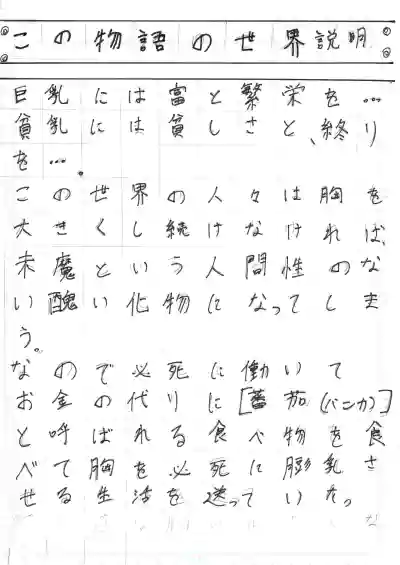 この物語の世界説明
巨乳には富と繁栄を…
貧乳には貧しさと、終り
を…。
この世界の人々は胸を
大きくし続けなければ、
未魔という人間性のな
い醜い化物になってしま
う。
なので必死に働いて
お金の代りに[蕃茄(バニカ)]
と呼ばれる食べ物を食
べて胸を必死に膨乳さ
せる生活を送っていた。